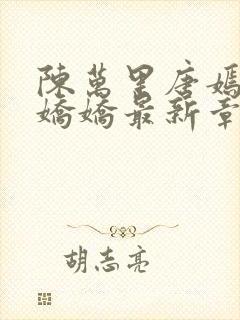 陳萬里唐嫣
嬌嬌最新章
胡志亮